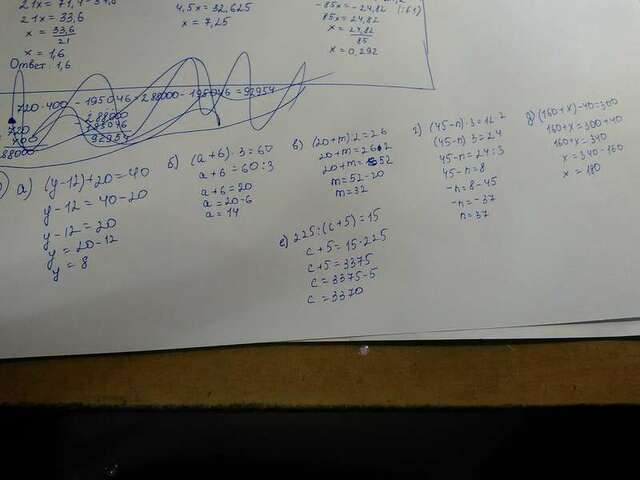 21x = 33,6
x = 33,6/21
x = 1,6
Ответ: 1,6
4,5x = 32,625
x = 7,25
-85x = -24,82 (:(-1)
85x = 24,82
x = 24,82/85
x = 0,292
720·400 - 195046 = 288000 - 195046 = 92954
а) (y-12)+20=40
y-12 = 40-20
y-12 = 20
y = 20-12
y = 8
б) (a+6)·3=60
a+6 = 60:3
a+6=20
a=20-6
a=14
в) (20+m):2=26
20+m=26·2
20+m=52
m=52-20
m=32
г) (45-n)·3=12·2
(45-n)·3=24
45-n=24:3
45-n=8
-n=8-45
-n=-37
n=37
д) (160+x)-40=300
160+x=300+40
160+x=340
x=340-160
x=180
е) 225:(c+5)=15
c+5=15·225
c+5=3375
c=3375-5
c=3370